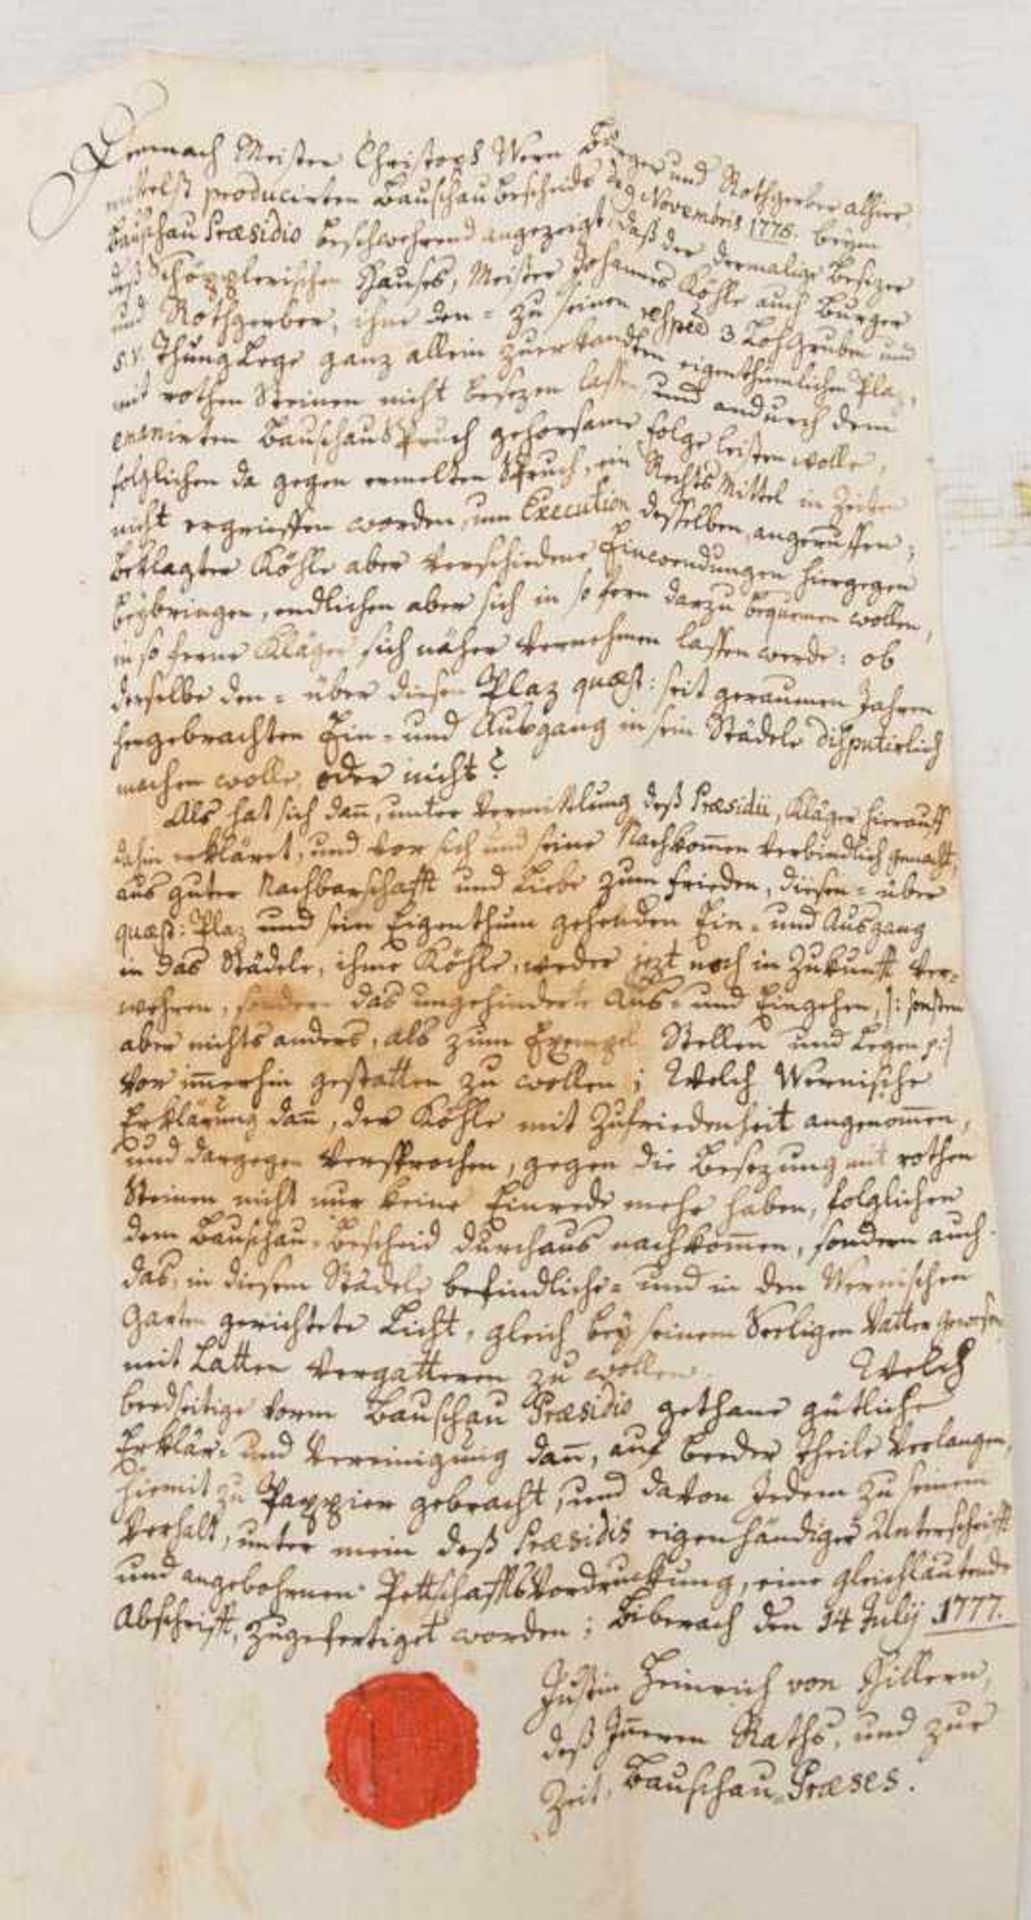 Demnach Meister Christoph Wern Burger und Rothgerber alhier,
mittelst producirten Bauschau Bescheids de 9 Novembris 1776. beym
Bauschau Præsidio beschwehrend angezeigt, daß der dermalige Besizer
deß Schöpplerischen Hauses, Meister Johannes Köhle auch Burger
und Rothgerber, ihne den = zu seinen 3 Lohgruben und
s. v. ganz allein zuerkandten eigenthümlichen Plaz,
mit rothen Steinen nicht besezen lassen, und andurch dem
Bauschau Spruch gehorsame folge leisten wolle,
folglichen da gegen ermelten Spruch, ein Rechts Mittel in Zeiten
nicht ergriffen worden, um Execution desselben, angeruffen;
Beklagter Köhle aber verschiedene Einwendungen hiergegen
beybringen, endlichen aber sich in so fern darzu bequemen wollen,
in so ferne Kläger sich näher vernehmen lassen werde: ob
derselbe den = über diesen Plaz quæst: seit geraumen Jahren
hergebrachten Ein = und Ausgang in sein Städele disputirlich
machen wolle, oder nicht?
Als hat sich dañ, unter Vermittlung deß Præsidii, Kläger hierauff
dahin erkläret, und vor sich und seine Nachkom̄en verbindlich gemacht,
aus guter Nachbarschafft und Liebe zum frieden, diesen = über
quæst: Plaz und sein Eigenthum gehenden Ein = und Ausgang
in das Städele, ihme Köhle, weder jezt noch in Zukunfft ver=
wehren, sondern das ungehinderte Aus = und Eingehen, |: sonsten
aber nichts anders, als zum Exempel Stellen und Legen p :|
vor im̄erhin gestatten zu wollen; Welch Wernische
Erklärung dañ, der Köhle mit Zufriedenheit angenom̄en,
und dargegen versprochen, gegen die Besezung mit rothen
Steinen nicht nur keine Einrede mehr haben, folglichen
dem Bauschau = Bescheid durchaus nachkom̄en, sondern auch
das, in diesem Städele befindliche = und in den Wernischen
Garten gerichtete Licht, gleich bey seinem Seeligen Vatter gewesen
mit Latten vergattern zu wollen. Welch
beedseitige vorm Bauschau Præsidio gethane gütliche
Erklär = und Vereinigung dañ, auf beeder theile Verlangen,
hiemit zu Pappier gebracht, und davon Jedem zu seinem
Verhalt, unter mein deß Præsidis eigenhändiger Unterschrifft
und angebohrnen Pettschaffts Vordruckung, eine gleichlautende
Abschrifft, zugefertiget worden; Biberach den 14 Julij 1777.
Justin Heinrich von Hillern,
deß Jn̄ern Raths, und zur
Zeit, Bauschau = Præses.